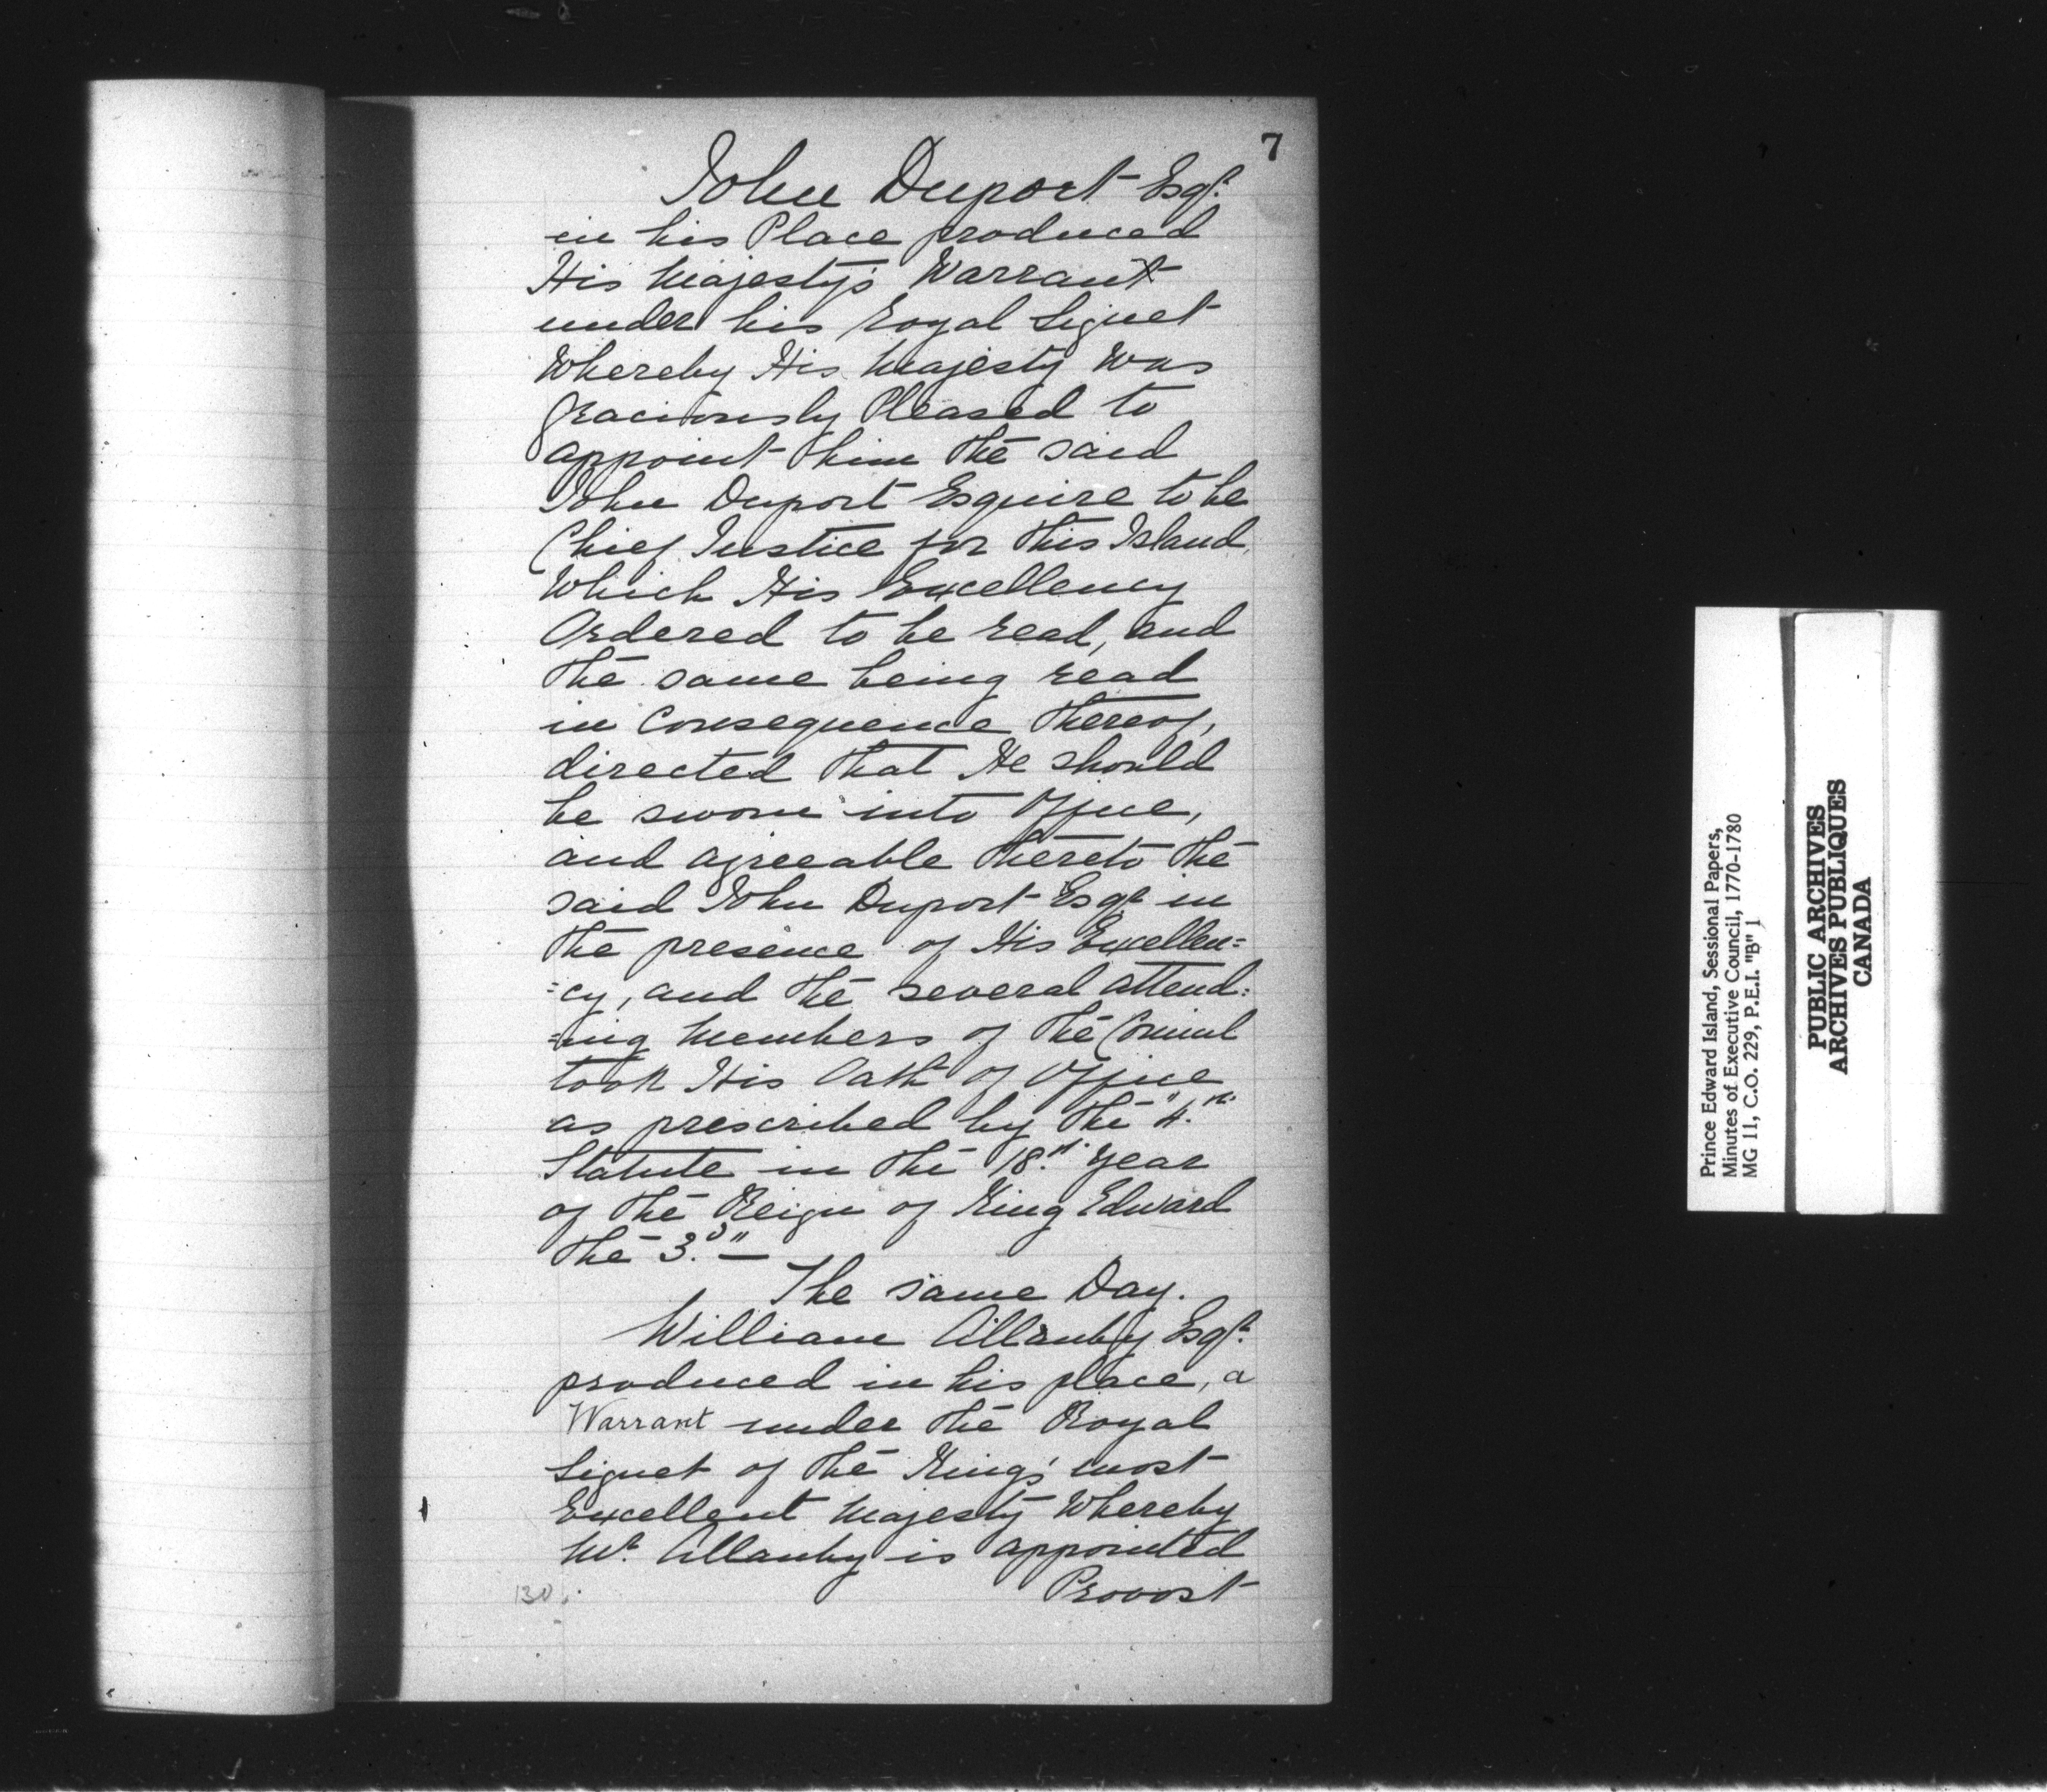 7
John Duport Esqr.
in his Place produced
His Majesty's Warrant
under his royal Signet
Whereby His Majesty Was
graciously Pleased to
appoint him the said
John Duport Esquire to be
Chief Justice for this Island,
Which His Excellency
Ordered to be read, and
the same being read
in Consequence thereof,
directed that He should
be sworn into Office,
and agreeable thereto the
said John Duport Esqr in
the presence of His Excellen=
=cy, and the several attend=
=ing Members of the Council
took His Oath of Office
as prescribed by the "4.th"
Statute in the 18.th Year
of the Reign of King Edward
the 3.d" —
The same Day.
William Allanby Esqr.
produced in his place, a
Warrant under the Royal
Signet of the King's most
Excellent Majesty Whereby
Mr. Allanby is appointed
Provost
Prince Edward Island, Sessional Papers,
Minutes of Executive Council, 1770-1780
MG 11, C.O. 229, P.E.I. "B" 1
PUBLIC ARCHIVES
ARCHIVES PUBLIQUES
CANADA